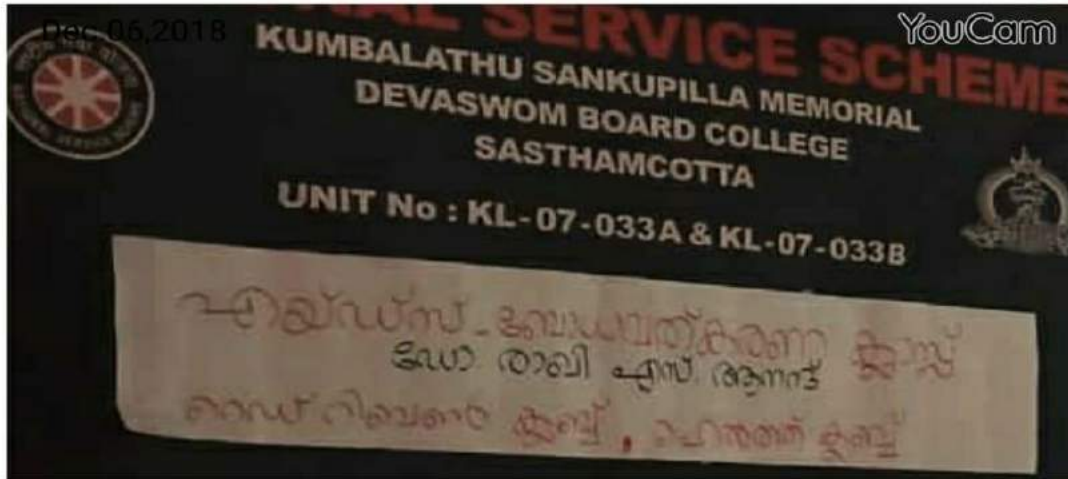 Dec 06,2018
YouCam
NAL SERVICE SCHEME
KUMBALATHU SANKUPILLA MEMORIAL
DEVASWOM BOARD COLLEGE
SASTHAMCOTTA
UNIT No : KL-07-033A & KL-07-033B
എയ്ഡ്സ് - ബോധവത്കരണ ക്ലാസ്സ്
ഡോ. രാഖി എസ്. ആനന്ദ്
റെഡ് റിബൺ ക്ലബ്ബ്, ഹെൽത്ത് ക്ലബ്ബ്